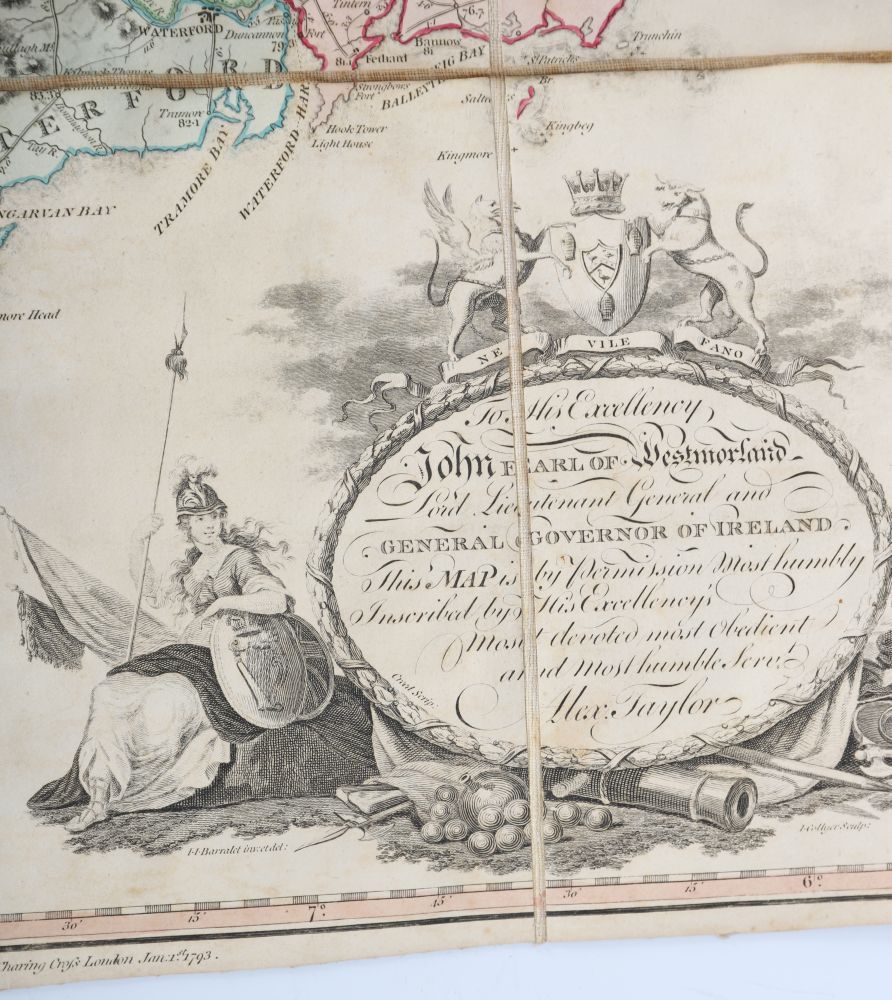 Tintern
WATERFORD
Duncannon
Fort
Bannow
81
76.7
Trunchin
Fethard
St. Patricks
Br
Strongbows
Fort
BALLEYTEIG BAY
TERFORD
Tramore
82.1
Hook Tower
Light House
Kingbeg
Kingmore
TRAMORE BAY
WATERFORD HAR
NGARVAN BAY
more Head
NE VILE FANO
To His Excellency
John EARL OF Westmorland
Lord Lieutenant General and
GENERAL GOVERNOR OF IRELAND
This MAP is by Permission Most humbly
Inscribed by His Excellency's
Most devoted most Obedient
and most humble Servt.
Alex. Taylor
Creed Scrip.
I·I·Barralet inv: et del:
I·Collyer Sculp:
30' 15' 7° 45' 30' 15' 6°
Charing Cross London Jan: 1st 1793.